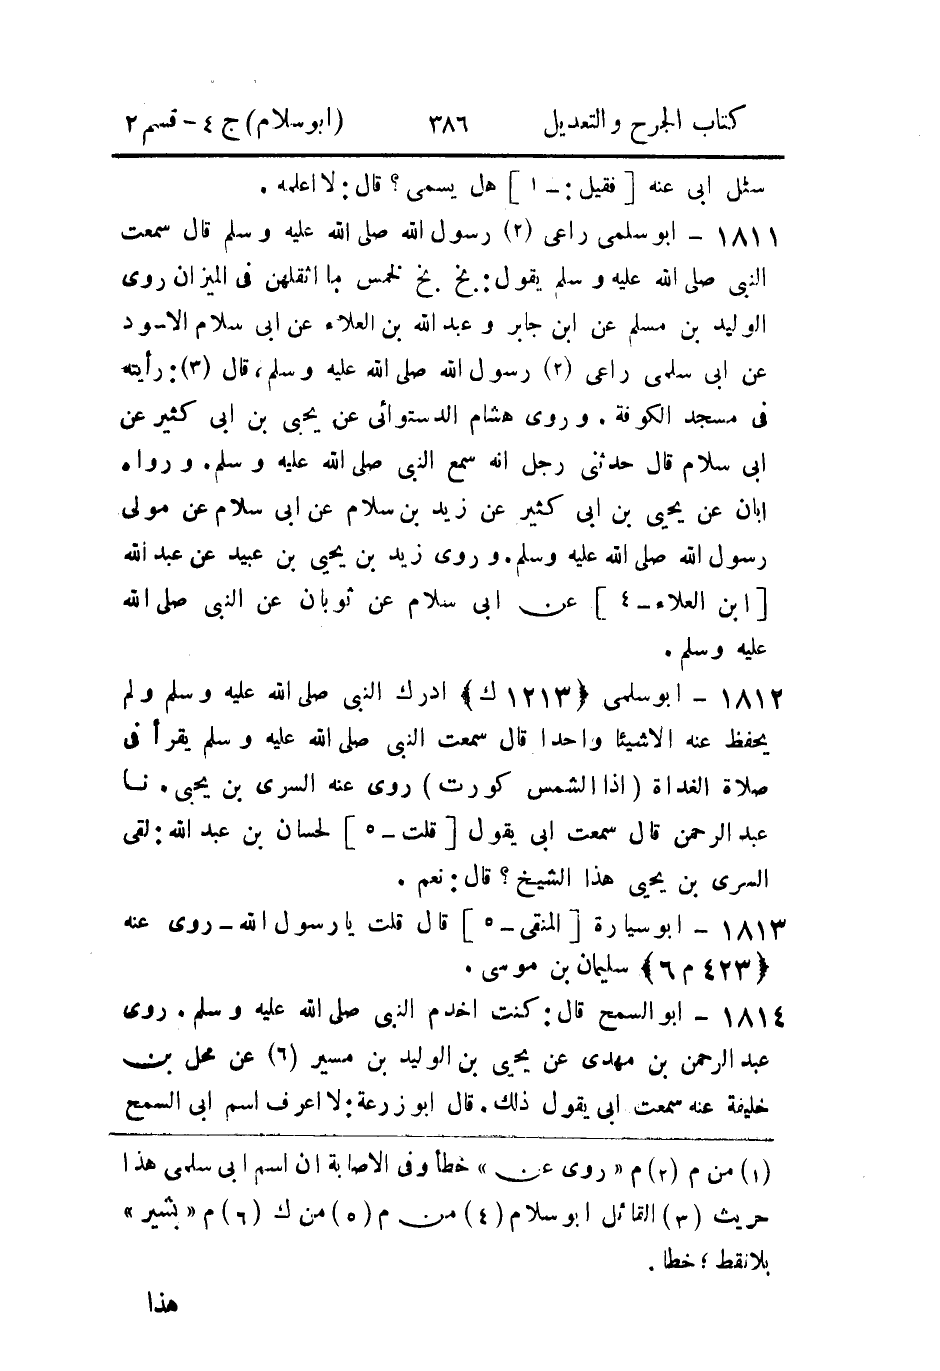 كتاب الجرح والتعديل ٣٨٦ (ابوسلام) ج ٤ - قسم ٢
سئل ابى عنه [ فقيل : - ١ ] هل يسمى ؟ قال : لا اعلمه .
١٨١١ - ابو سلمى راعى (٢) رسول الله صلى الله عليه وسلم قال سمعت
النبى صلى الله عليه وسلم يقول : بخ بخ لخمس ما اثقلهن فى الميزان روى
الوليد بن مسلم عن ابن جابر وعبد الله بن العلاء عن ابى سلام الاسود
عن ابى سلمى راعى (٢) رسول الله صلى الله عليه وسلم ، قال (٣) : رأيته
فى مسجد الكوفة . وروى هشام الدستوائى عن يحيى بن ابى كثير عن
ابى سلام قال حدثنى رجل انه سمع النبى صلى الله عليه وسلم . ورواه
ابان عن يحيى بن ابى كثير عن زيد بن سلام عن ابى سلام عن مولى
رسول الله صلى الله عليه وسلم . وروى زيد بن يحيى بن عبيد عن عبد الله
[ ابن العلاء - ٤ ] عن ابى سلام عن ثوبان عن النبى صلى الله
عليه وسلم .
١٨١٢ - ابو سلمى ﴿١٢١٣ ك﴾ ادرك النبى صلى الله عليه وسلم ولم
يحفظ عنه الا شيئا واحدا قال سمعت النبى صلى الله عليه وسلم يقرأ فى
صلاة الغداة ( اذا الشمس كورت ) روى عنه السرى بن يحيى . نا
عبد الرحمن قال سمعت ابى يقول [ قلت - ٥ ] لحسان بن عبد الله : لقى
السرى بن يحيى هذا الشيخ ؟ قال : نعم .
١٨١٣ - ابو سيارة [ المتقى - ٥ ] قال قلت يا رسول الله - روى عنه
﴿٤٢٣ م ٦﴾ سليمان بن موسى .
١٨١٤ - ابو السمح قال : كنت اخدم النبى صلى الله عليه وسلم . روى
عبد الرحمن بن مهدى عن يحيى بن الوليد بن مسير (٦) عن محل بن
خليفة عنه سمعت ابى يقول ذلك . قال ابو زرعة : لا اعرف اسم ابى السمح
(١) من م (٢) م « روى عن » خطأ وفى الاصابة ان اسم ابى سلمى هذا
حريث (٣) القائل ابو سلام (٤) من م (٥) من ك (٦) م « بشير »
بلا نقط ؛ خطا .
هذا